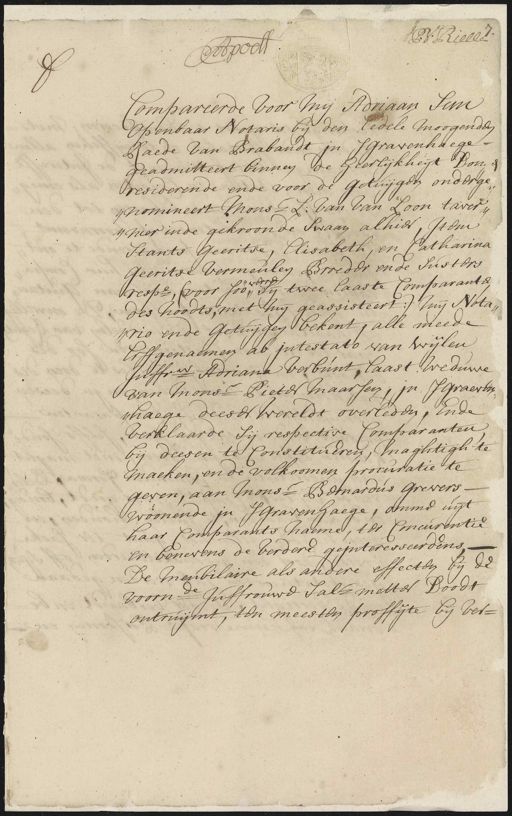 Compareerde voor my Adriaan Sem
Openbaar Notaris by den Eedele moogende
Raede van Brabandt in SGravenhaege
geadmitteert binnen de Heerlijkheyt
residerende ende voor de Getuijgen onderge
nomineert Monsr. L: van van Loon taver
nier inde gekroonde Swaan alhier, Item
Stants Geeritse, Elisabeth, en Catharina
Geeritse Vermeulen Broeder ende Susters
respe. (voor soo veel sy twee laaste Comparante
des noodts, met my geassisteert:) my Nota
rio ende Getuijgen bekent, alle meede
Erffgenamen ab intestato van wijlen
Juffrw. Adriana Verbunt, laast weduwe
van Monsr. Pieter Maarsen, in SGraven
haege deeser Wereldt overleeden, Ende
verklaarde sij respective Comparanten
bij deesen te Constitueren, maghtigh te
maeken, ende volkoomen procuratie te
geven, aan Monsr. Bernardus Grevers
woonende in SGravenhaege, omme uijt
haar Comparants naeme, ter Concurentie
en benevens de verdere geinteresseerdens
De meubilaire als andere effecten by de
voornde. Juffrouwe Sal. metter Doodt
ontruijmt, ten meesten proffijte by ver=